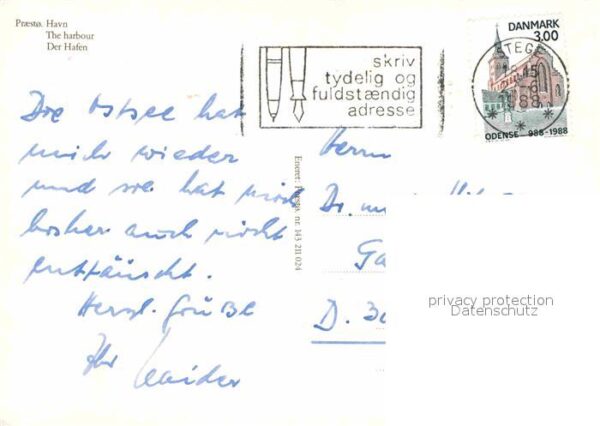 Præstø. Havn
The harbour
Der Hafen
Die Ostsee hat
mich wieder
und sie hat mich
bisher auch nicht
enttäuscht.
Herzl. Grüße
Ihr
skriv
tydelig og
fuldstændig
adresse
DANMARK
3.00
STEGE
ODENSE 988-1988
Eneret: Præstø. nr. 143 211 024
Herrn
Dr. m
Ga
D.
privacy protection
Datenschutz